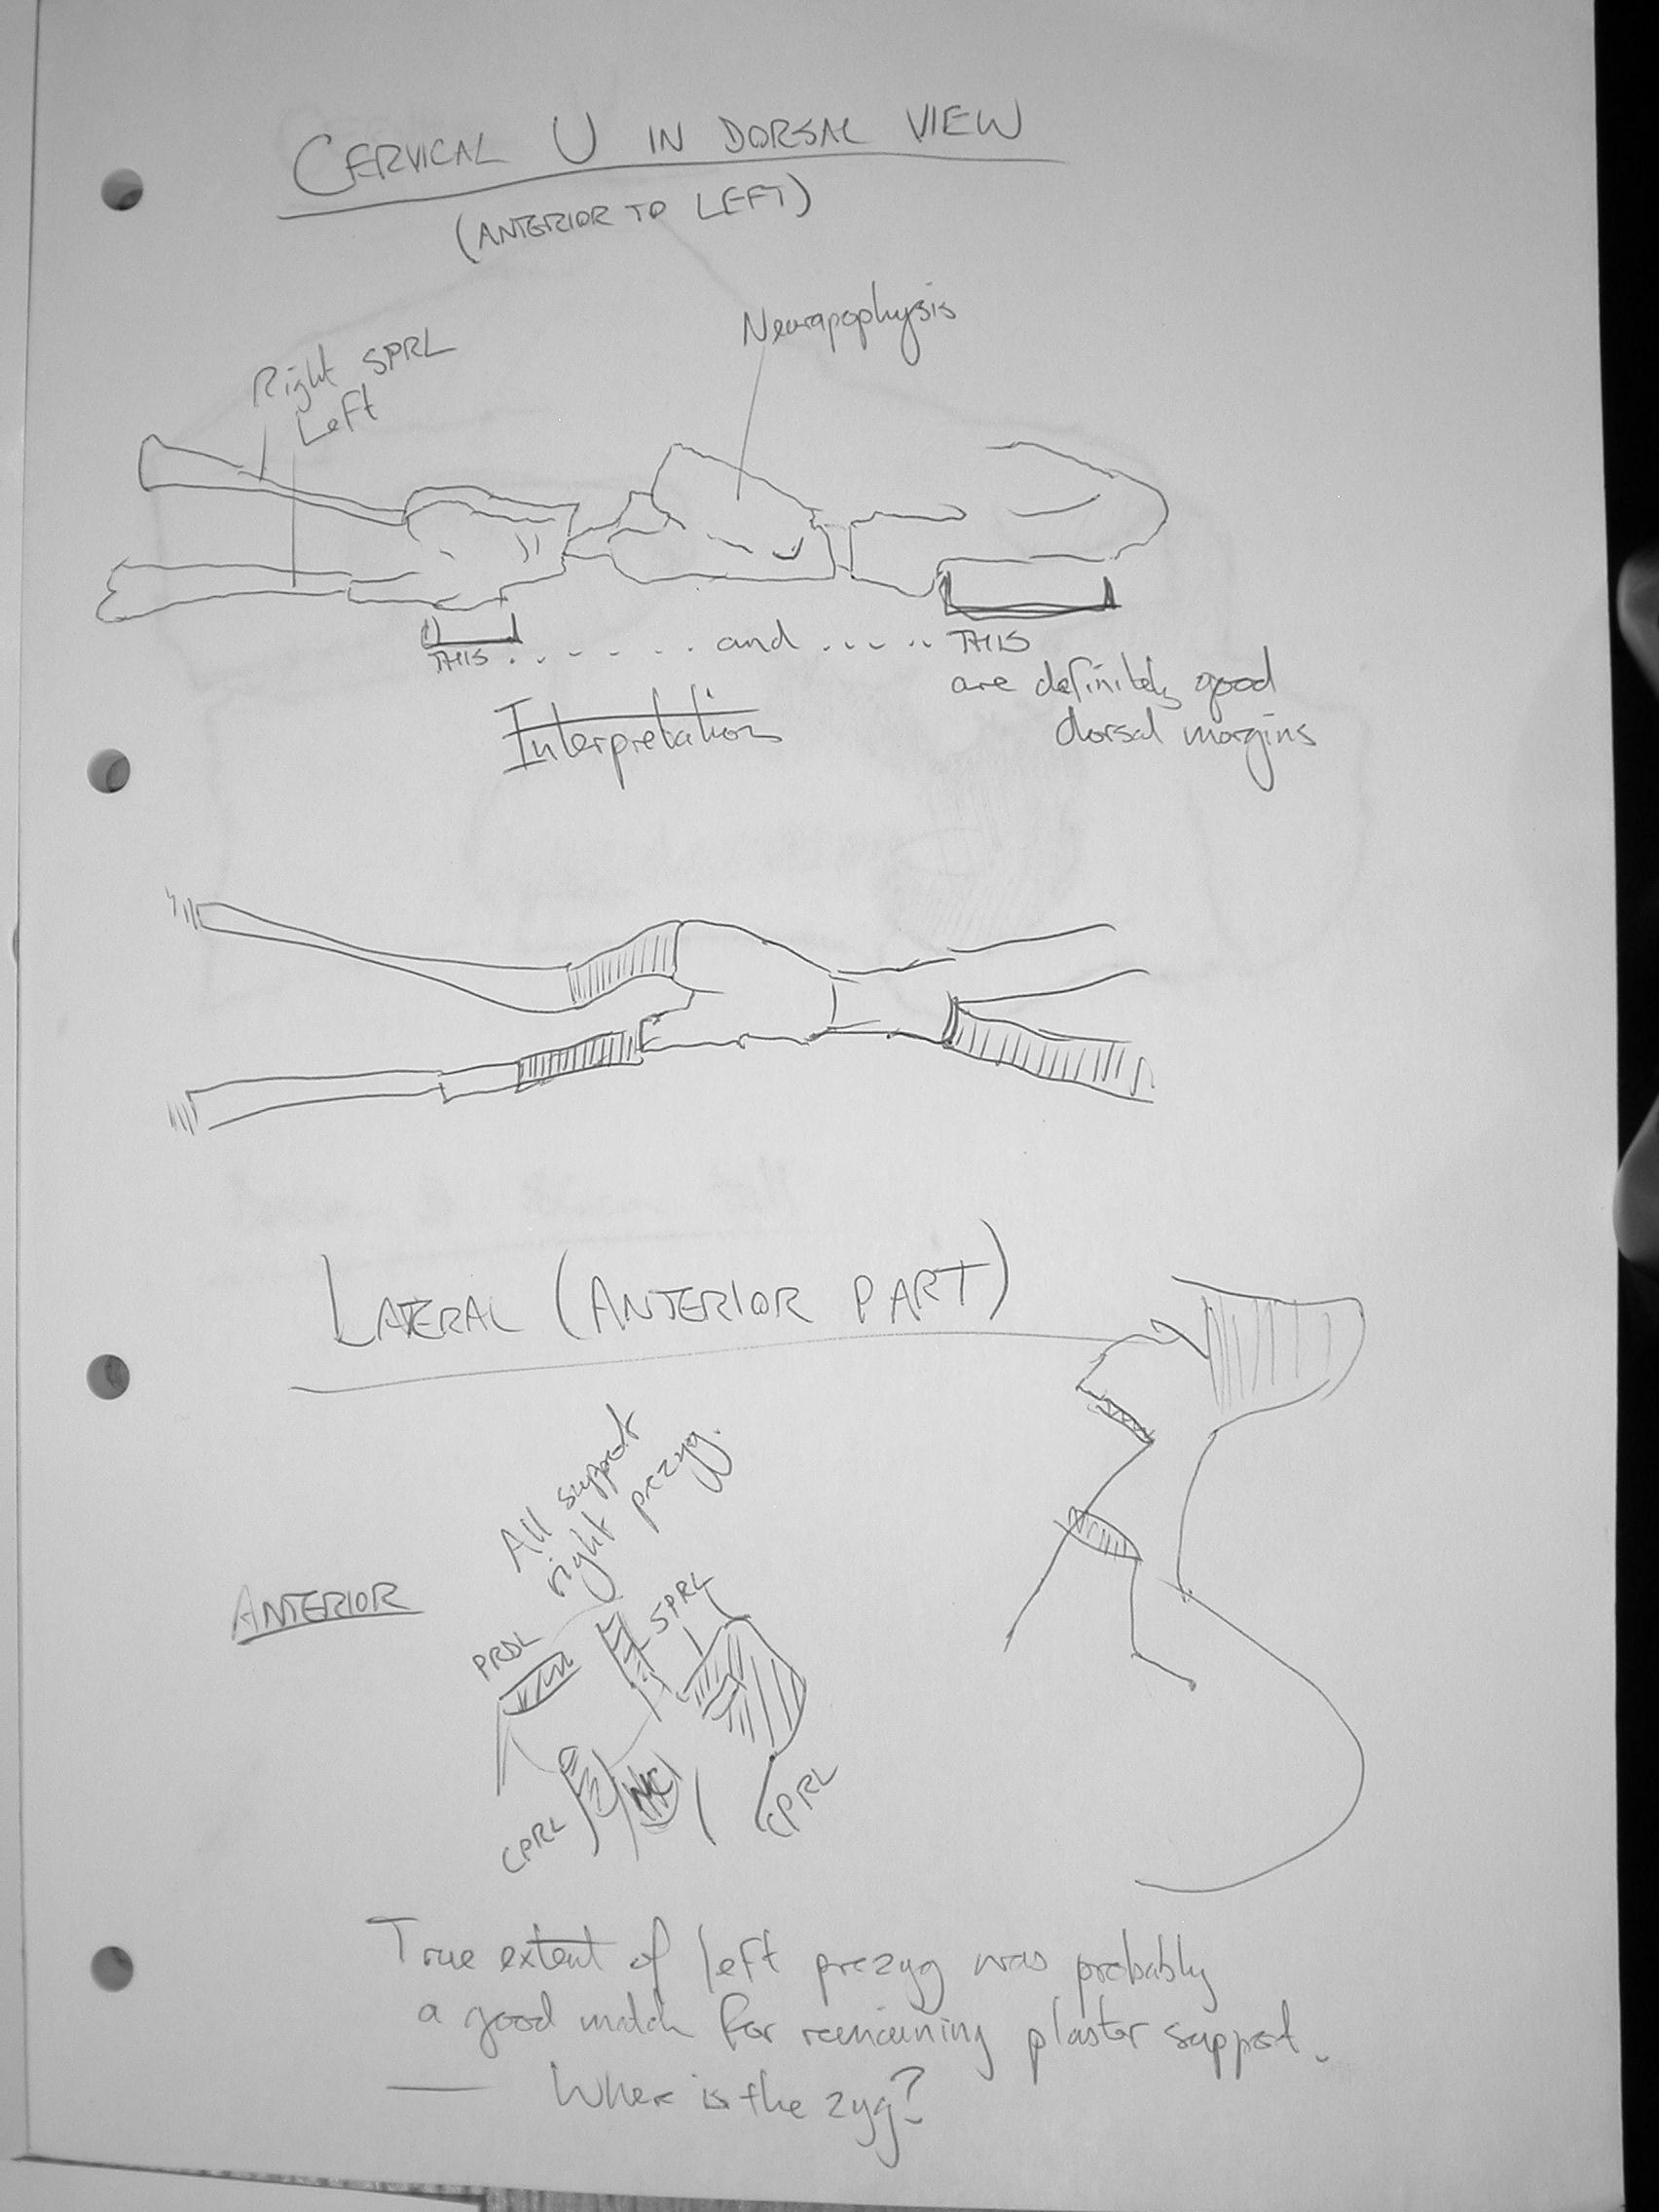 CERVICAL U IN DORSAL VIEW
(ANTERIOR TO LEFT)
Neurapophysis
Right SPRL
Left
THIS . . . . . . . and . . . . . . THIS
are definitely good
dorsal margins
Interpretation
LATERAL (ANTERIOR PART)
All support
right prezyg.
ANTERIOR
SPRL
PRDL
NC
CPRL
CPRL
True extent of left prezyg was probably
a good match for remaining plaster support.
— Where is the zyg?